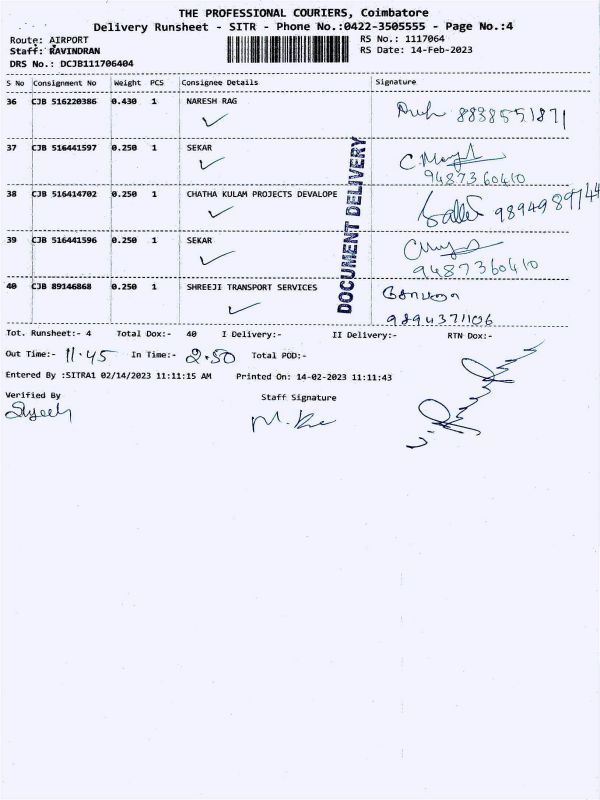 THE PROFESSIONAL COURIERS, Coimbatore
Delivery Runsheet - SITR - Phone No.:0422-3505555 - Page No.:4
Route: AIRPORT RS No.: 1117064
Staff: RAVINDRAN RS Date: 14-Feb-2023
DRS No.: DCJB111706404
S No Consignment No Weight PCS Consignee Details Signature
36 CJB 516220386 0.430 1 NARESH RAG
8838551871
37 CJB 516441597 0.250 1 SEKAR
9487360410
38 CJB 516414702 0.250 1 CHATHA KULAM PROJECTS DEVALOPE
9894989744
39 CJB 516441596 0.250 1 SEKAR
9487360410
40 CJB 89146868 0.250 1 SHREEJI TRANSPORT SERVICES
9894371106
DOCUMENT DELIVERY
Tot. Runsheet:- 4 Total Dox:- 40 I Delivery:- II Delivery:- RTN Dox:-
Out Time:- 11.45 In Time:- 2.50 Total POD:-
Entered By :SITRA1 02/14/2023 11:11:15 AM Printed On: 14-02-2023 11:11:43
Verified By Staff Signature